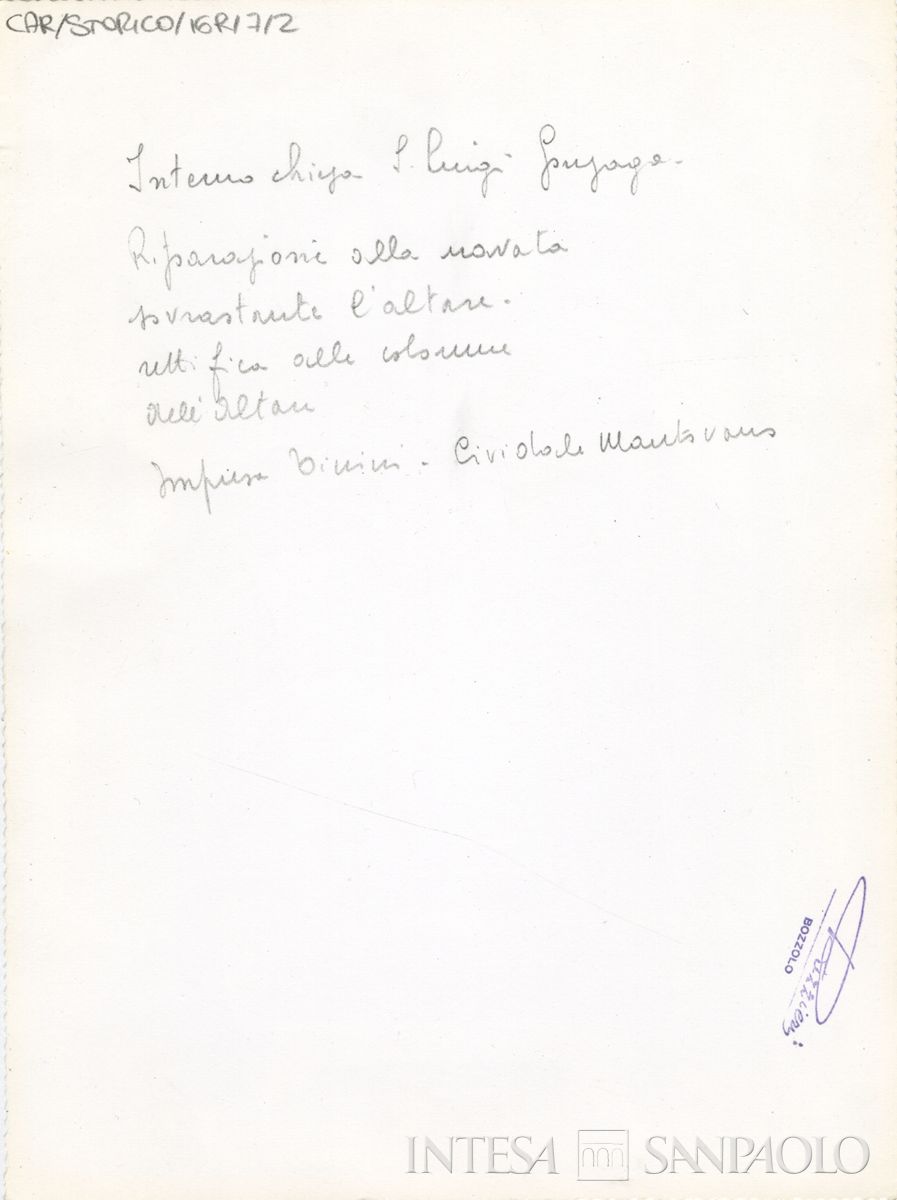 CAR/STORICO/16R17/2
Interno chiesa S. Luigi Gonzaga.
Riparazioni alla navata
sovrastante l'altare.
rettifica alle colonne
dell'Altare
Impresa - Cividale Mantovano
BOZZOLO
INTESA SANPAOLO